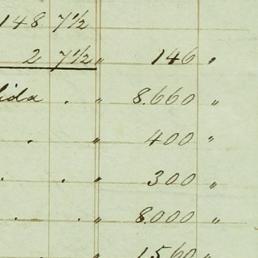 148 7½
2 7½ " 146 "
ida . " 8.660 "
. " 400 "
. . " 300 "
. . " 8.000 "
" 1.560 "